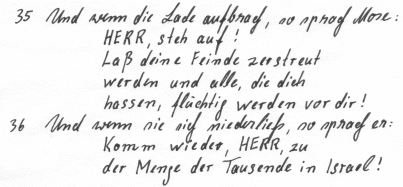 35 Und wenn die Lade aufbrach, so sprach Mose:
HERR, steh auf!
Laß deine Feinde zerstreut
werden und alle, die dich
hassen, flüchtig werden vor dir!
36 Und wenn sie sich niederließ, so sprach er:
Komm wieder, HERR, zu
der Menge der Tausende in Israel!